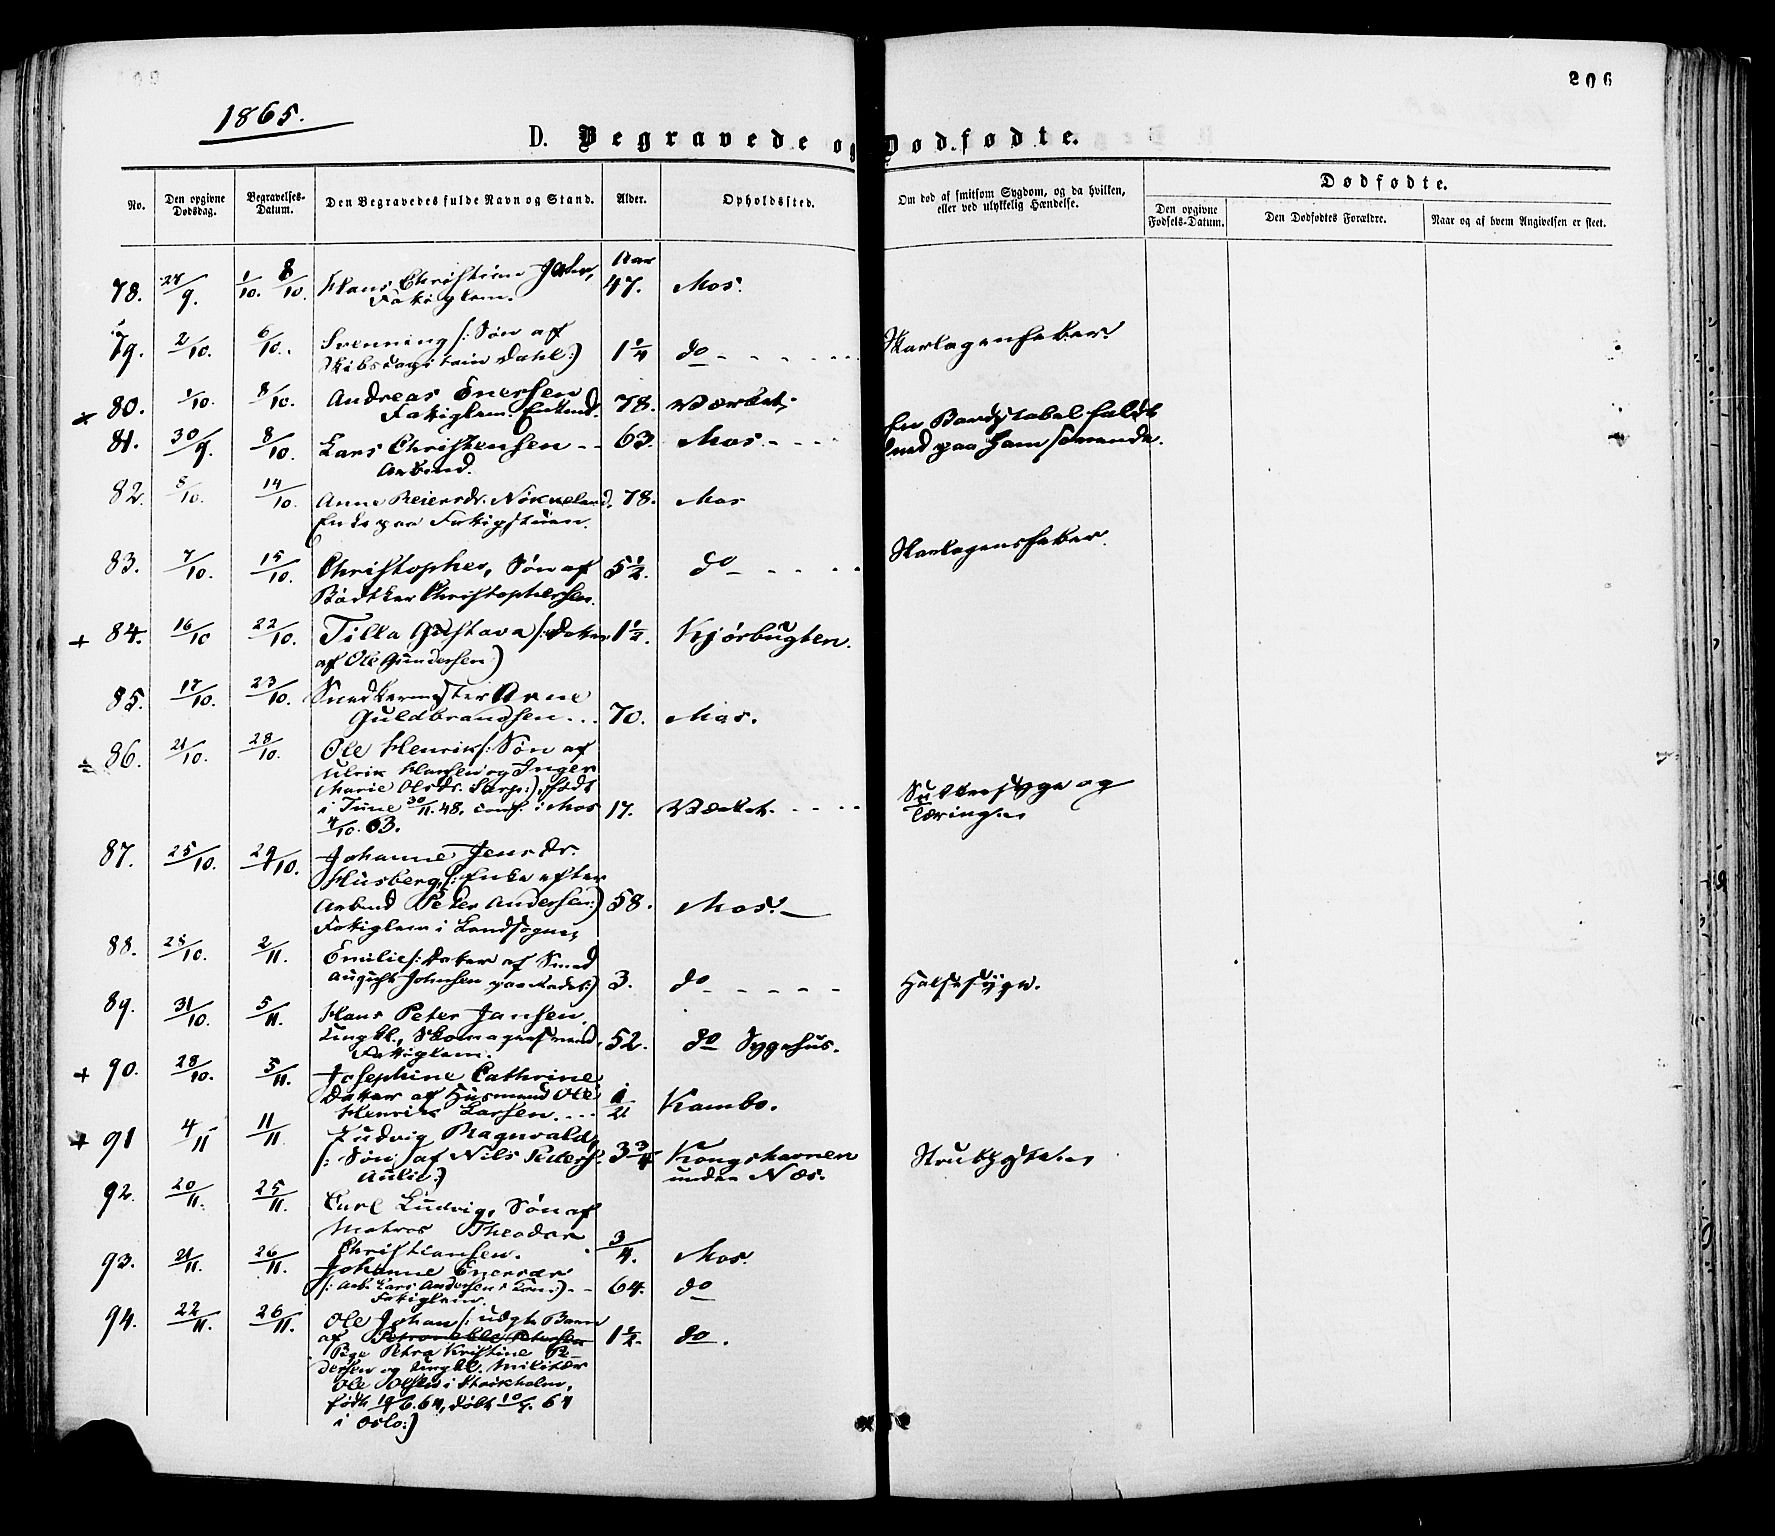 206
1865.
D. Begravede og Dødfødte.
No. Den opgivne Dødsdag. Begravelses-Datum. Den Begravedes fulde Navn og Stand. Alder. Opholdssted. Om død af smitsom Sygdom, og da hvilken, eller ved ulykkelig Hændelse. Dødfødte.
Den opgivne Fødsels-Datum. Den Dødfødtes Forældre. Naar og af hvem Angivelsen er skeet.
Aar
78. 27/9. 1/10. 8/10. Hans Christian 47. Mos.
Fattiglem.
79. 2/10. 6/10. Svenning /: Søn af Skarlagensfeber
Skibscapitain Dahl:) 1 1/4 do
80. 1/10. 8/10. Andreas Enersen
Fattiglem. Enkmd. 78. Værket
En Bordstabel faldt
81. 30/9. 8/10. Lars Christensen 63. Mos.
ned paa ham
Arbmd.
82. 5/10. 14/10. Anne Reiersdr. 78. Mos
Enke paa Fattigstuen.
83. 7/10. 15/10. Christopher, Søn af 5 1/2. do Skarlagensfeber.
Bødtker Christophersen.
+ 84. 16/10 22/10. Tilla Gustava /: Datter 1 1/2. Kjørbugten.
af Ole Gundersen)
85. 17/10. 23/10. Snedkermester Arne
Guldbrandsen... 70. Mos.
86. 21/10. 28/10. Ole Henrik /: Søn af
Ulrik Hansen og Inger
Marie Olsdr. Sarp:), født
i Tune 30/11.48. conf. i Mos 17. Værket. Sukkersyge og
4/10.63. Tæring
87. 25/10. 29/10. Johanne Jensdr.
Husberg, /: Enke efter
Arbmd Peder Andersen:) 58. Mos.
Fattiglem i Landsogne
88. 25/10. 2/11. Emilie /: Datter af Smed
August Johnsen 3. do Halssyge.
89. 31/10. 5/11. Hans Peter Jansen,
Ungkl., Skomagersvend, 52. do Sygehus.
Fattiglem.
+ 90. 28/10. 5/11. Josephine Cathrine
Datter af Husmand Ole Kambo.
Henrik Larsen....
+ 91 4/11 11/11. Ludvig Magnvald,
/: Søn af Nils 3 3/4 Kongshavnen
Aulie:) under Næs.
92. 20/11. 25/11. Carl Ludvig, Søn af
Matros Theodor
Christiansen. 3/4. Mos.
93. 21/11. 26/11. Johanne
/: Arb. Lars Andersens Kone:) 64. do
Fattiglem.
94. 22/11. 26/11. Ole Johan /: uægte Barn
af Petronelle Petersen 1 1/2. do.
Pge Petra Kristine Pe-
dersen og Ungkl. Militær
Ole Olsen i Stockholm,
født 19/6.64, døbt 10/7.64
i Oslo:)